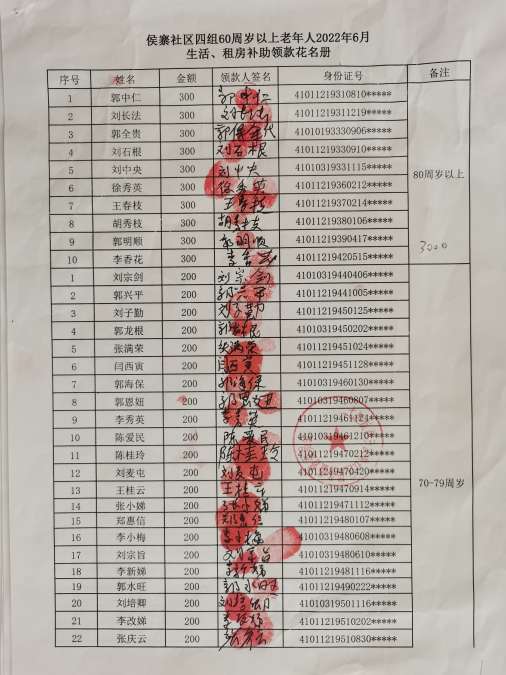 侯寨社区四组60周岁以上老年人2022年6月
生活、租房补助领款花名册
序号 姓名 金额 领款人签名 身份证号 备注
1 郭中仁 300 郭中仁 41011219310810*****
2 刘长法 300 刘长法 41011219311219*****
3 郭全贵 300 41010193330906*****
4 刘石根 300 刘石根 41011219330910*****
5 刘中央 300 刘中央 41010319331115*****
6 徐秀英 300 徐秀英 41011219360212***** 80周岁以上
7 王春枝 300 王春枝 41011219370214*****
8 胡秀枝 300 胡秀枝 41011219380106*****
9 郭明顺 300 郭明顺 41011219390417***** 3000
10 李香花 300 李香花 41011219420515*****
1 刘宗剑 200 刘宗剑 41010319440406*****
2 郭兴平 200 郭兴平 41011219441005*****
3 刘子勤 200 刘子勤 41011219450125*****
4 郭龙根 200 41010319450202*****
5 张满荣 200 张满荣 41011219451024*****
6 闫西寅 200 闫西寅 41011219451128*****
7 郭海保 200 郭海保 41010319460130*****
8 郭恩妞 200 41010319460807*****
9 李秀英 200 李秀英 41011219461124*****
10 陈爱民 200 陈爱民 41010319461210*****
11 陈桂玲 200 陈桂玲 41011219470212*****
12 刘麦屯 200 刘麦屯 41011219470420***** 70-79周岁
13 王桂云 200 王桂云 41011219470914*****
14 张小娣 200 张小娣 41011219471112*****
15 郑惠信 200 41011219480107*****
16 李小梅 200 李小梅 41010319480608*****
17 刘宗旨 200 刘宗旨 41010319480610*****
18 李新娣 200 李新娣 41011219481116*****
19 郭水旺 200 郭水旺 41011219490222*****
20 刘培卿 200 41010319501116*****
21 李改娣 200 41011219510202*****
22 张庆云 200 41011219510830*****